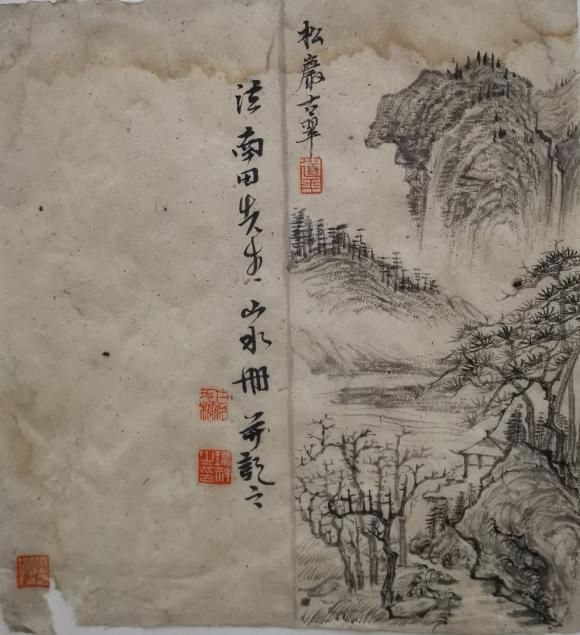 松巖古翠
法南田先生山水冊并記之